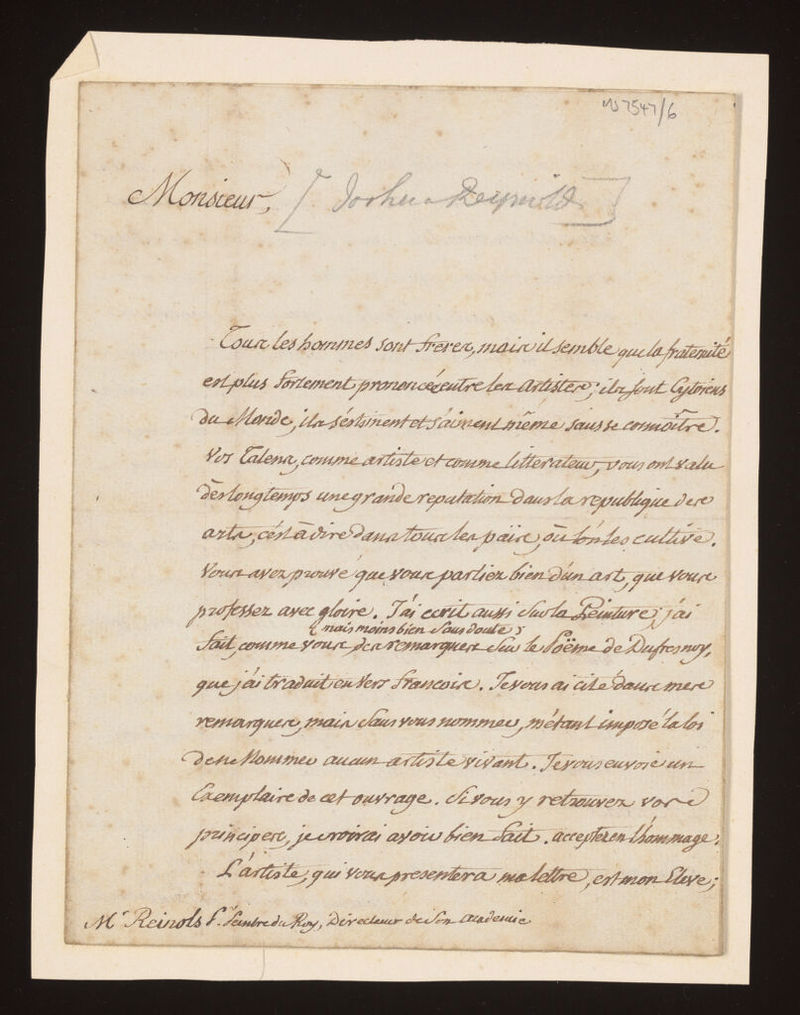 MS 7547/6
Monsieur, [Joshua Reynolds]
Tous les hommes sont freres, mais il semble que la fraternité
est plus fortement prononcée entre les artistes; ils sont Cytoiens
du Monde, ils s'éstiment et s'aiment même sans se connoître.
Vos Talens, comme artiste et comme litterateur, vous ont valu
dès longtemps une grande reputation dans la republique des
arts, c'est à dire dans tous les païs, où l'on les cultive.
Vous avez prouvé que vous parliez bien d'un art, que vous
professez avec gloire. J'ai ecrit aussi sur la Peinture; j'ai
(mais moins bien sans doute)
fait, comme vous des remarques sur le Poëme de Dufresnoy,
que j'ai traduit en vers francois. Je vous ai cité dans mes
remarques, mais sans vous nommer, m'étant imposé la loi
de ne Nommer aucun artiste vivant. Je vous envoie un
Exemplaire de cet ouvrage. Si vous y retrouvez vos
principes, je croirai avoir bien fait. acceptez en l'hommage.
L'artiste, qui vous presentera ma lettre, est mon Eleve;
Mr. Reinols Pr. Peintre du Roy, Directeur de Son academie